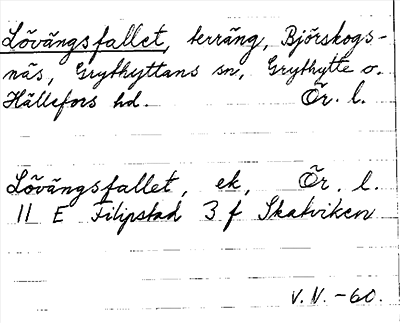 Lövängsfallet, terräng, Björskogs-
näs, Grythyttans sn, Grythytte o.
Hällefors hd. Ör. l.
Lövängsfallet, ek, Ör. l.
11 E Filipstad 3 f Skatviken
V.V. -60.